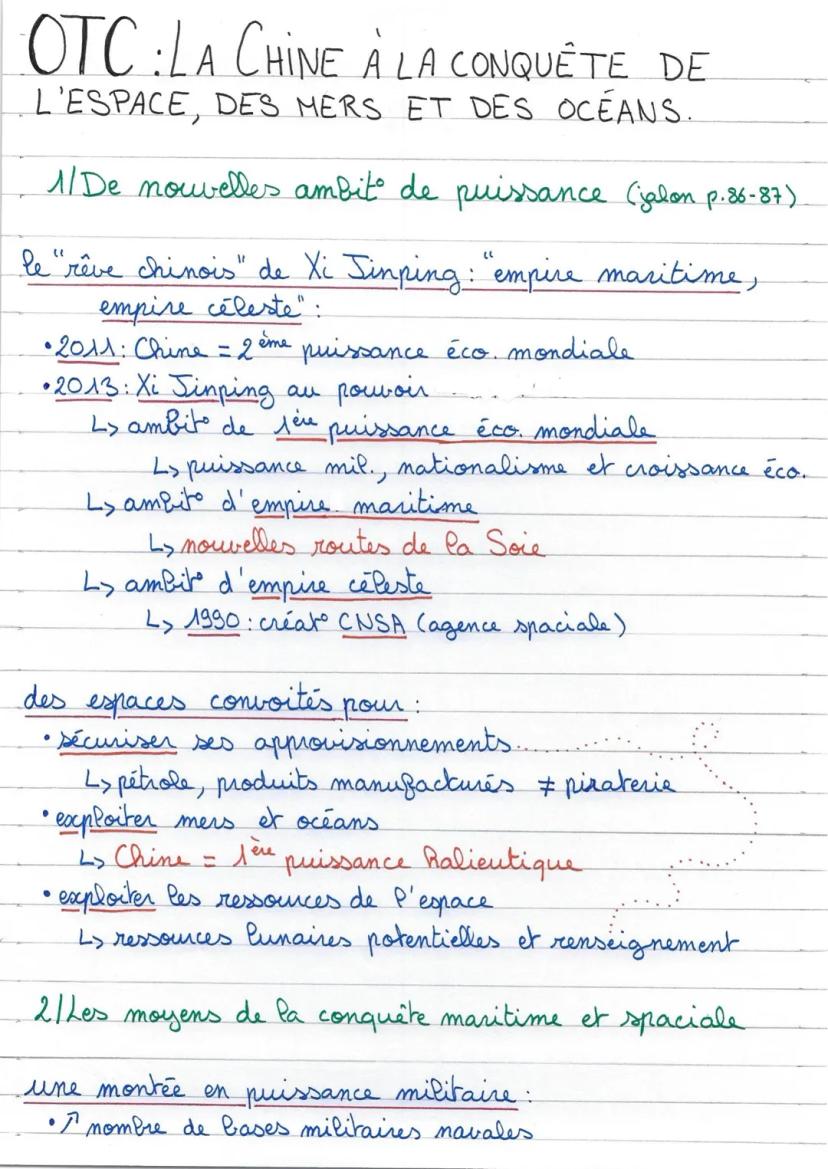 OTC : LA CHINE À LA CONQUÊTE DE
L'ESPACE, DES MERS ET DES OCÉANS.
1/ De nouvelles ambit° de puissance (jalon p.86-87)
le "rêve chinois" de Xi Jinping : "empire maritime,
empire céleste" :
• 2011 : Chine = 2ème puissance éco. mondiale
• 2013 : Xi Jinping au pouvoir
↳ ambit° de 1ère puissance éco. mondiale
↳ puissance mil., nationalisme et croissance éco.
↳ ambit° d'empire maritime
↳ nouvelles routes de la Soie
↳ ambit° d'empire céleste
↳ 1990 : créat° CNSA (agence spaciale)
des espaces convoités pour :
• sécuriser ses approvisionnements
↳ pétrole, produits manufacturés ≠ piraterie
• exploiter mers et océans
↳ Chine = 1ère puissance halieutique
• exploiter les ressources de l'espace
↳ ressources lunaires potentielles et renseignement
2/ Les moyens de la conquête maritime et spaciale
une montée en puissance militaire :
• ↗ nombre de bases militaires navales